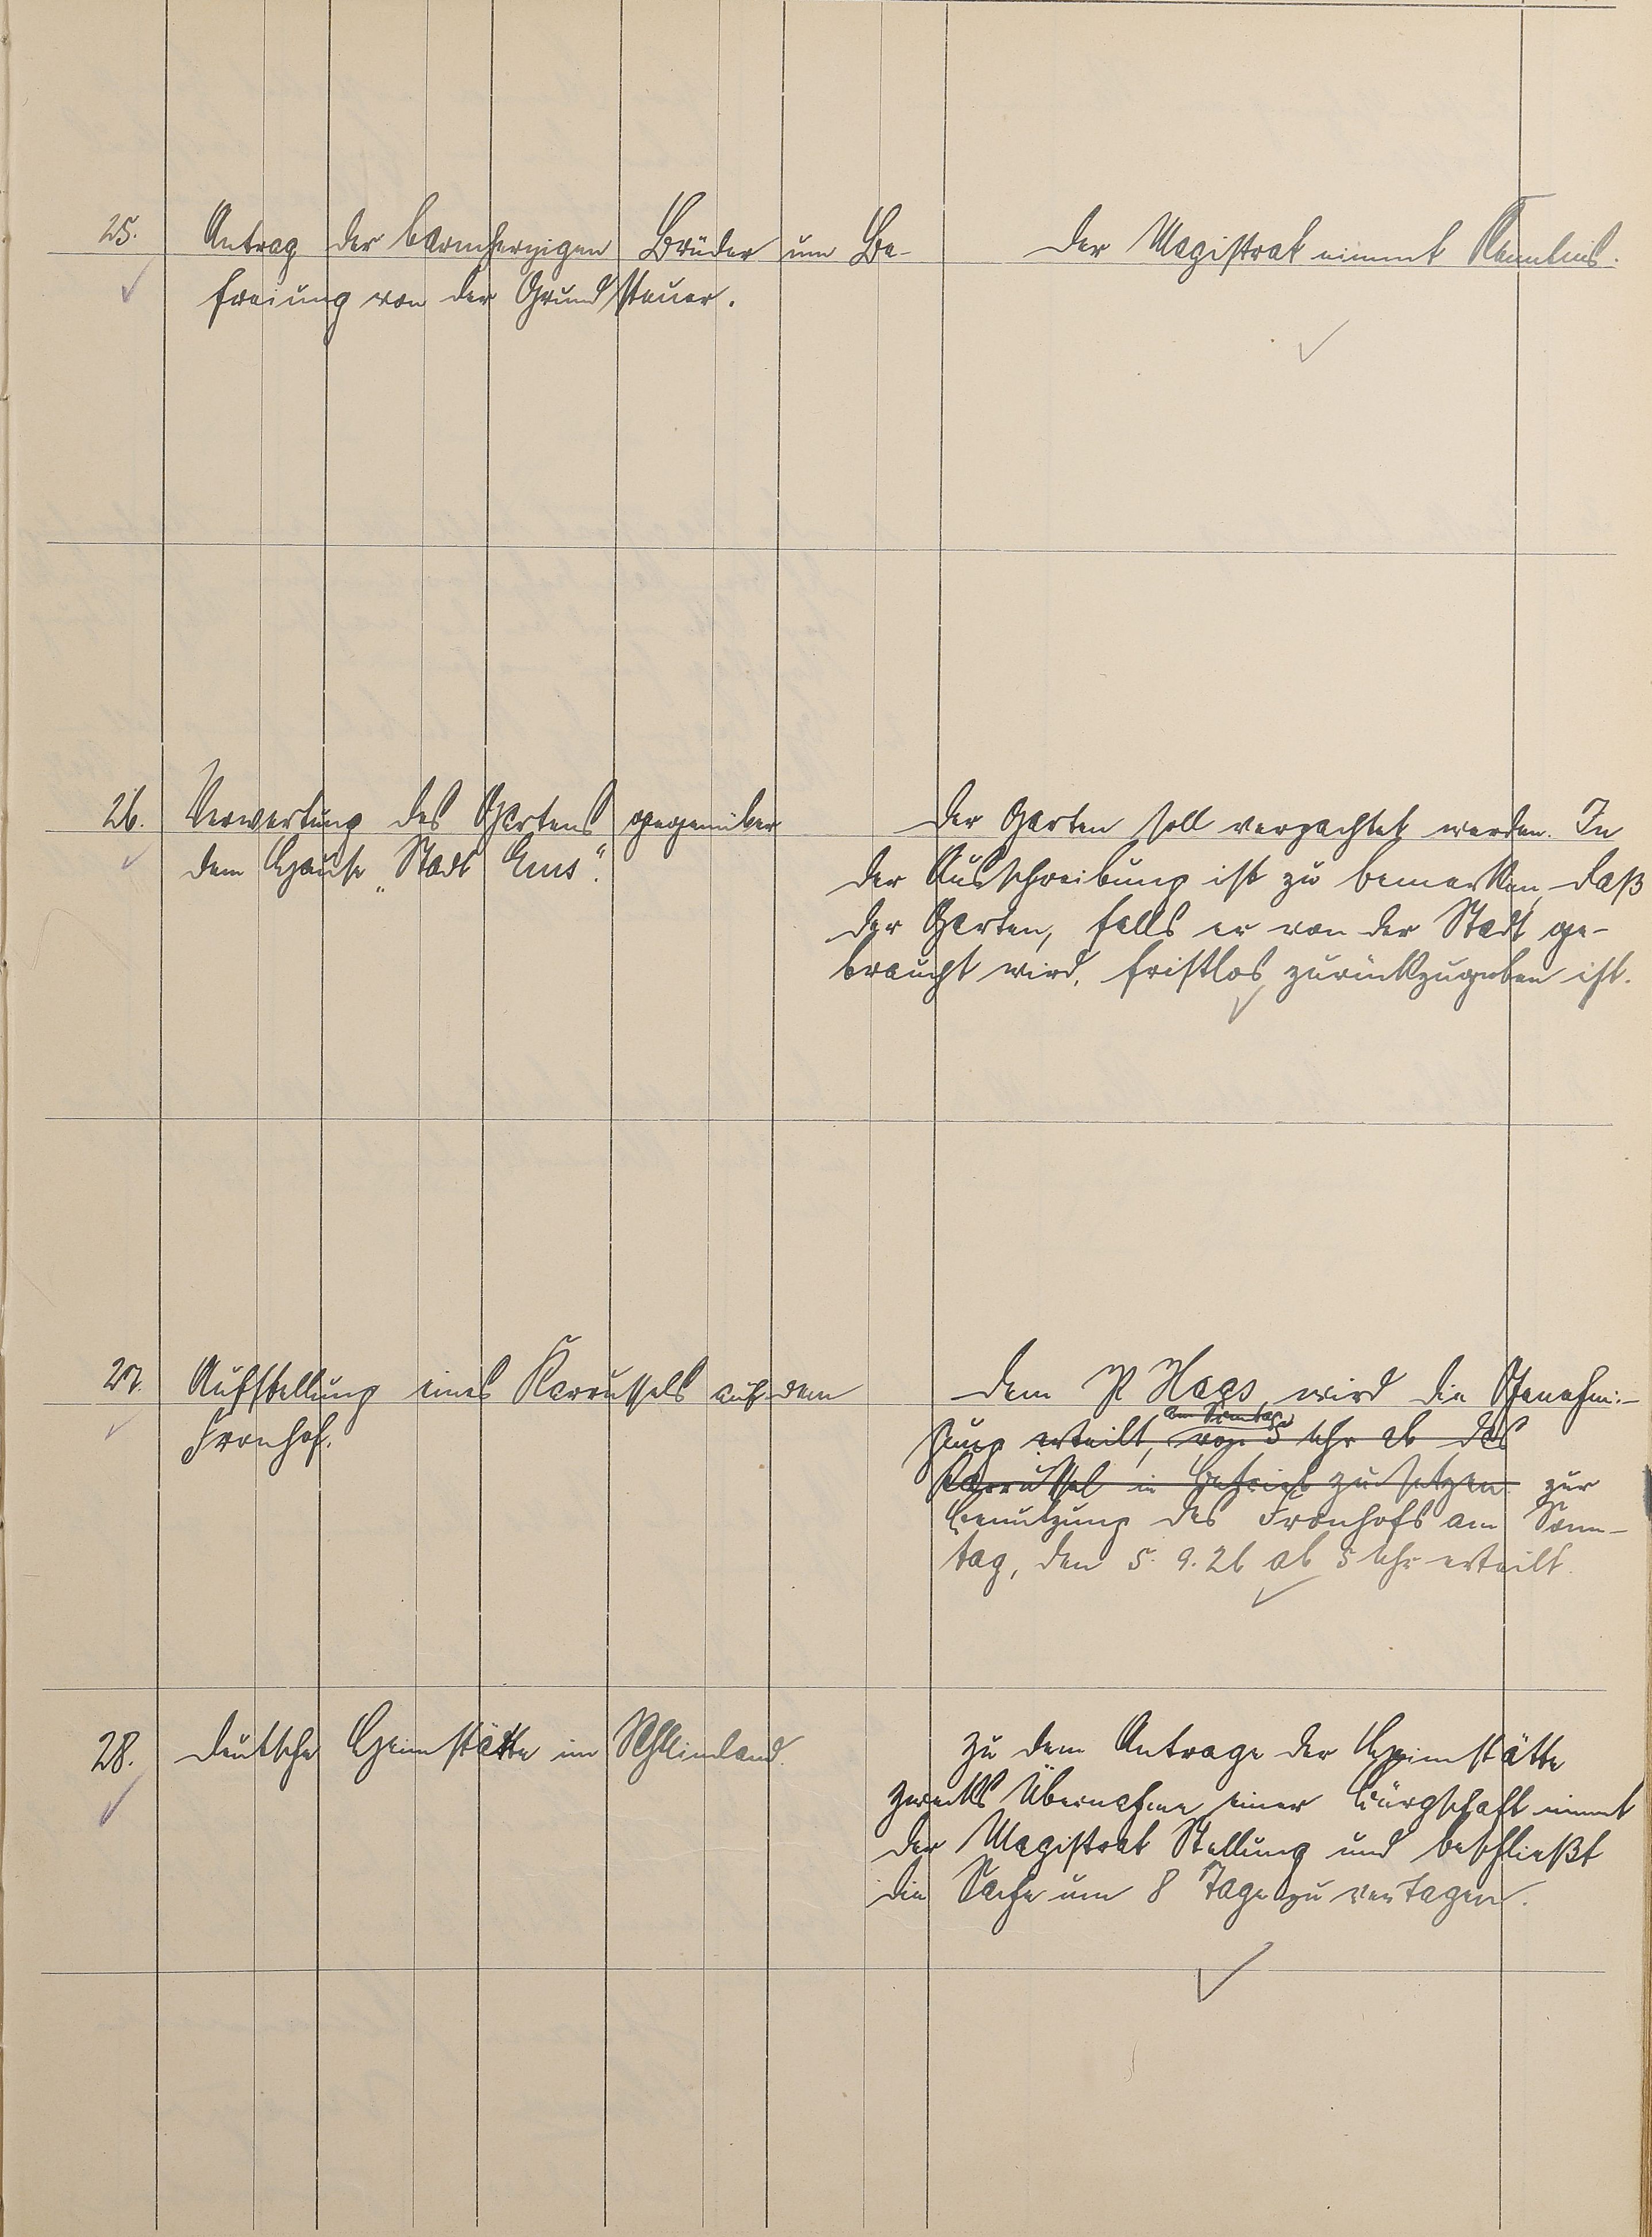 25.
Antrag der barmherzigen Brüder um Be-
freiung von der Grundsteuer.
Der Magistrat nimmt Kenntnis.
26.
Verwertung des Gartens gegenüber
dem Hause „Stadt Ems“.
Der Garten soll verpachtet werden. In
der Ausschreibung ist zu bemerken, daß
der Garten, falls er von der Stadt ge-
braucht wird, fristlos zurückzugeben ist.
27.
Aufstellung eines Karussels auf dem
Fronhof.
Dem P. Haas wird die Genehmi-
gung erteilt, am Sonntag von 5 Uhr ab das
Karussel in Betrieb zu setzen zur
Benutzung des Fronhofs am Sonn-
tag, den 5. 9. 26 ab 5 Uhr erteilt.
28.
Deutsche Heimstätte im
Zu dem Antrage der Heimstätte
zwecks Übernahme einer Bürgschaft nimmt
der Magistrat Stellung und beschließt
die Sache um 8 Tage zu vertagen.